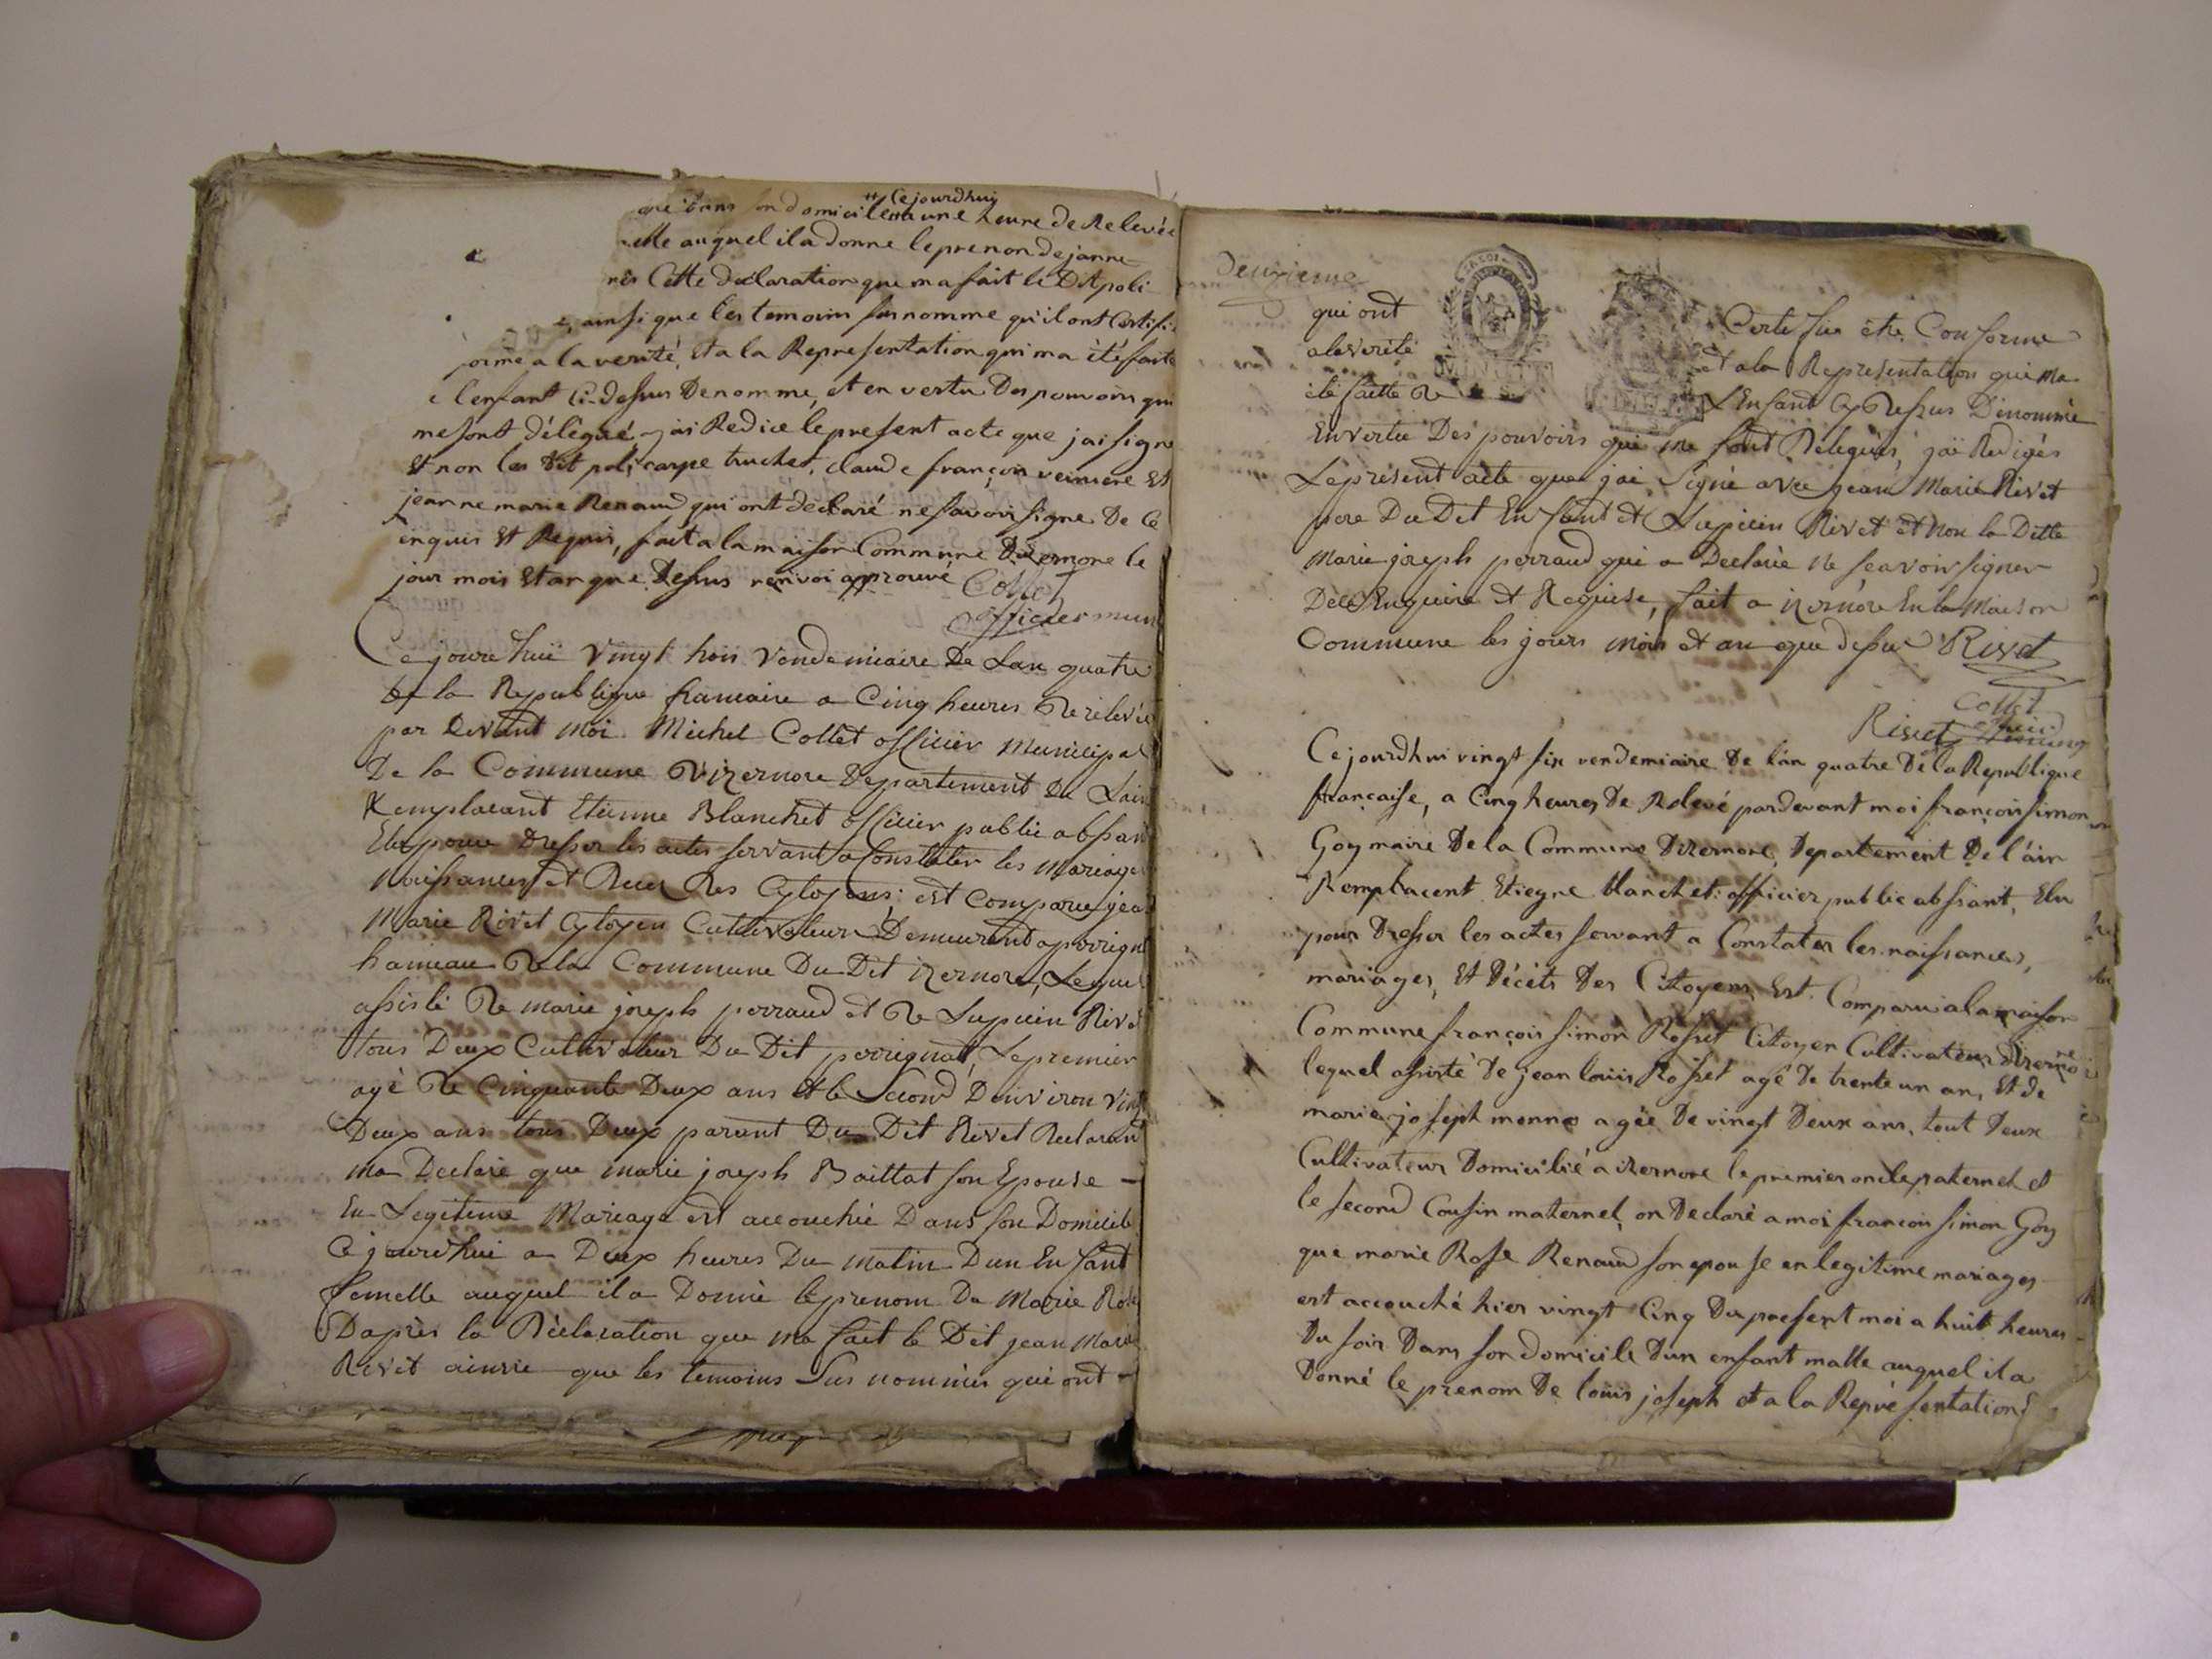 que dans son domicile a une heure de Relevée
++ Cejourdhuy
auquel il a donne le prenon de janne
Cette declaration que ma fait le Dit poli
ainsi que les temoins sus nomme qu'il ont Certifi
forme a la verité, Et a la Representation qui ma été faite
e lenfant Ci-dessus Denomme, et en vertu Des pouvoirs qui
me sont délégué, jai Redice le present acte que jai signe
Et non les Dit policarpe truchet, claude françois verniere Et
jeanne marie Renaud qui ont déclaré ne savoir signe De Ce
enquis Et Requis, fait a la maison Commune Dizernore le
jour mois Et an que Dessus renvoi approuvé Collet
officier mun
Cejourdhui vingt trois vendemiaire De Lan quatre
de la Republique francaire a Cinq heures De relevée
par devant moi Michel Collet officier Municipal
De la Commune Dizernore Departement De Lain
Remplacant Etienne Blanchet officier public absant
Elu pour Dresser les actes servant a Constater les Mariages
Naissances et Deces Des Cytoyens est comparu jean
Marie Rivet Cytoyen Cultivateur Demeurant a perrignat
hameau De la Commune Du Dit izernore, Lequel
assisté De marie joseph perraud et De Lupicin Rivet
tous Deux Cultivateur Du Dit perrignat, Le premier
agé De Cinquante Deux ans et le Second Denviron vingt
Deux ans tous Deux parant Du Dit Rivet Declarant
ma Declaré que marie joseph Baittat son Epouse -
En Legitime Mariage est accouchée Dans son Domicile
Cejourdhui a Deux heures Du matin Dun Enfant
femelle auquel il a Donné le prenom De Marie Rose
Daprès la Déclaration que ma fait le Dit jean Marie
Rivet ainsie que les temoins Sus nommés qui ont -
Deuxieme
qui ont Certifie être Conforme
a la verité et a la Representation qui ma
été faitte De LEnfant Cy Dessus Dénommé
En vertu Des pouvoirs qui me sont Delegués, jai Redigés
Le présent acte que jai Signé avec jean Marie Rivet
pere Du Dit Enfant et Lupicin Rivet et Non la Ditte
Marie joseph perraud qui a Declarée Ne sçavoir signer
De ce Enquise et Requise, fait a izernore En la Maison
Commune les jours mois et an que dessus Rivet
Collet
Rivet
Cejourdhui vingt six vendemiaire De l'an quatre De la Republique
française, a Cinq heures De Relevé pardevant moi françois simon
Goy maire De la Commune Dizernore, Departement De l'ain
Remplacent Etiegne blanchet officier public absant, Elu
pour Dresser les actes servant a Constater les naissances,
mariages, Et Décéts Des Cittoyens Est Comparu a la maison
Commune françois simon Rosset Cittoyen Cultivateur Dizernore
lequel assisté De jean louis Rosset agé De trente un an, Et de
marie joseph monne agée De vingt Deux ans, tout Deux
Cultivateur Domicilié a izernore le premier oncle paternel et
le second Cousin maternel, on Declaré a moi francois simon Goy
que marie Rose Renaud son epouse en legitime mariages
est accouché hier vingt Cinq Du present moi a huit heures
Du soir Dans son domicile Dun enfant malle auquel il a
Donné le prenom De louis joseph et a la Representation